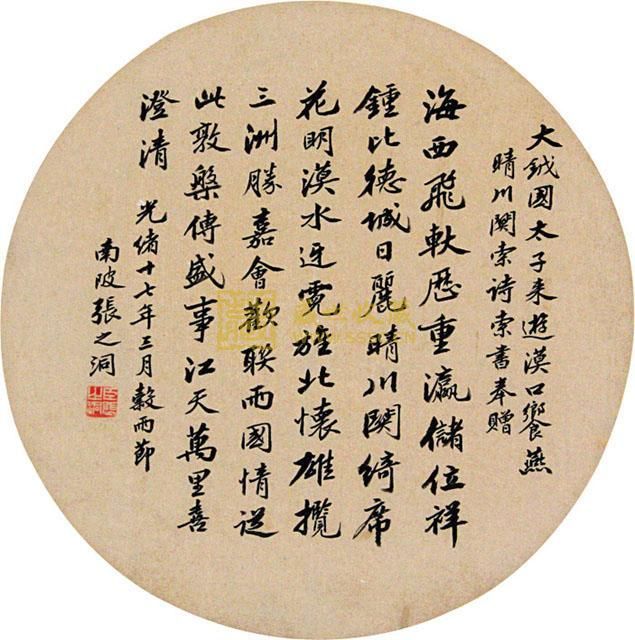 大國太子来遊漢口饗燕
晴川閣索诗索書奉贈
海西飛軼歷重瀛儲位祥
鍾比德城日麗晴川閣綺席
花明漢水迓霓旌北懷雄攬
三洲勝嘉會歡聯兩國情從
此敦槃傳盛事江天萬里喜
澄清 光緒十七年三月穀雨節
南陂張之洞